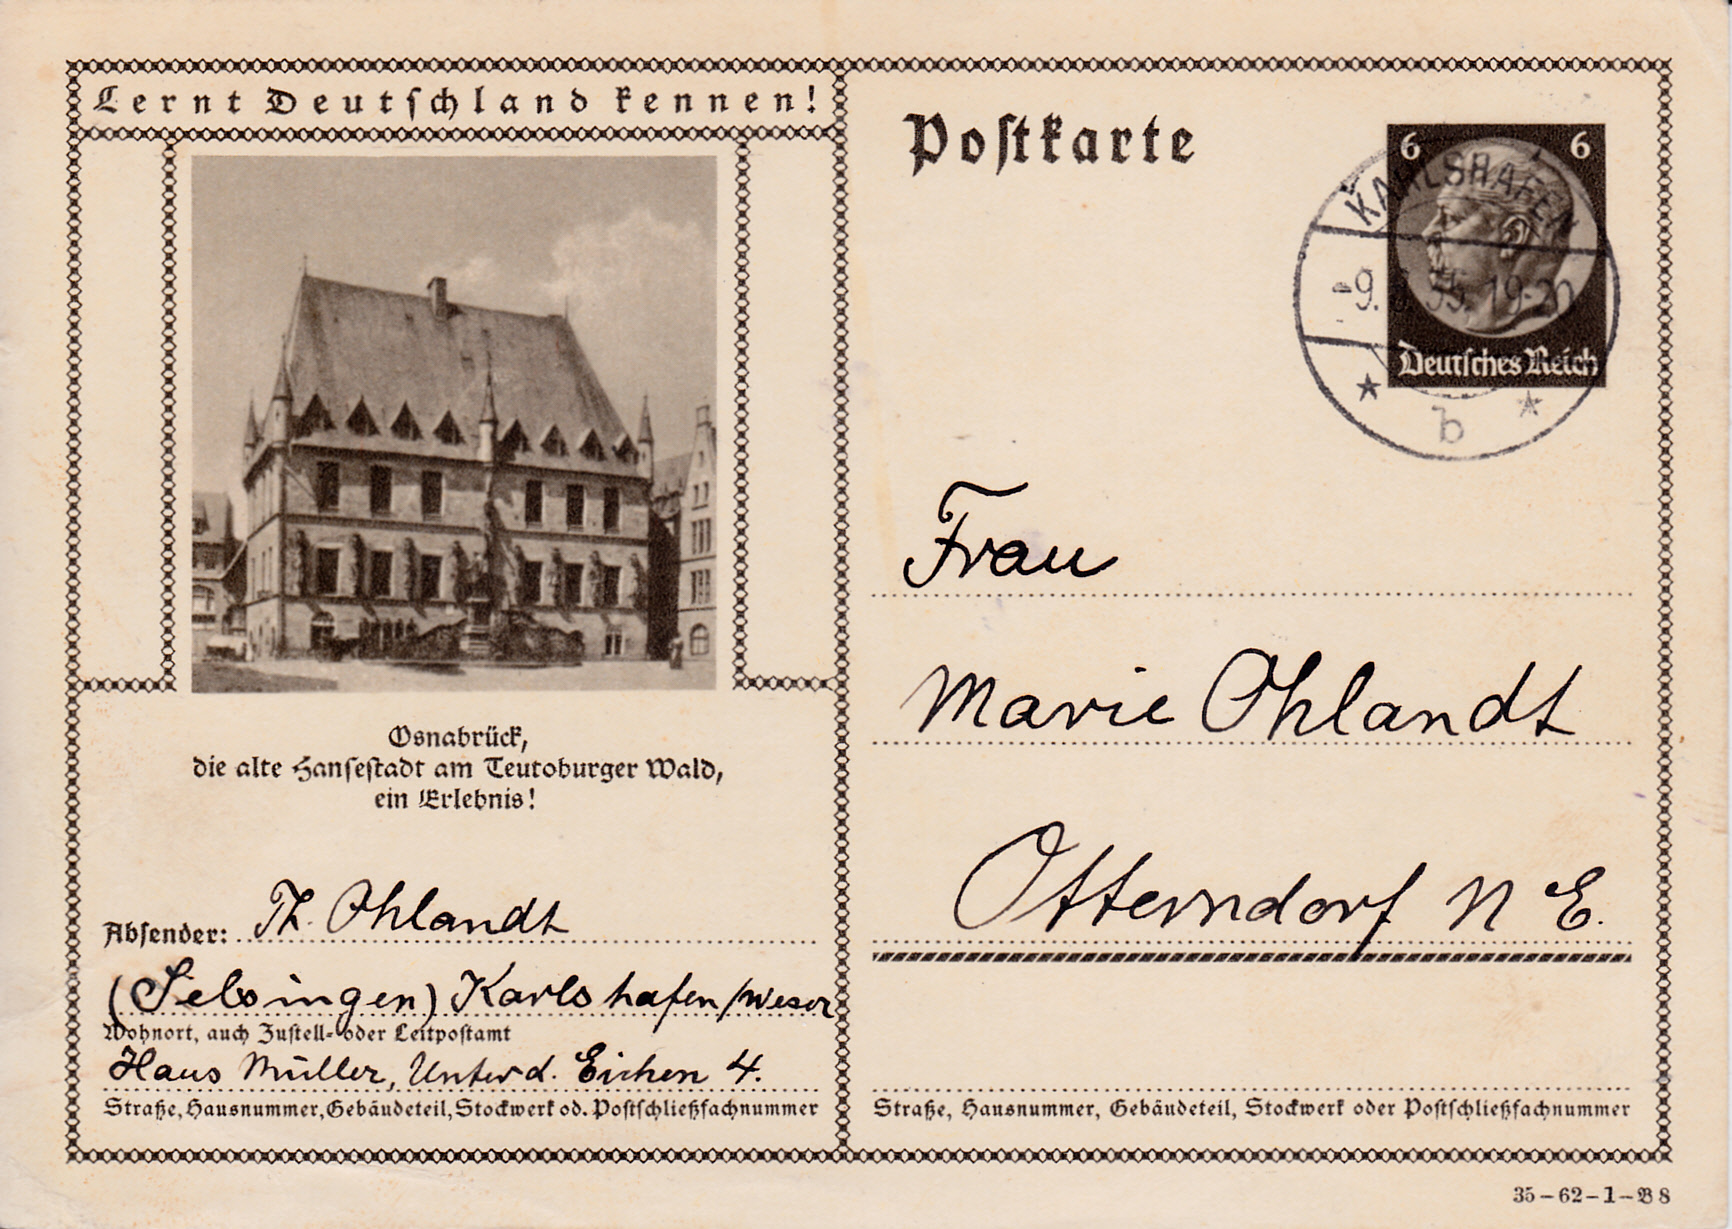 Lernt Deutschland kennen!
Postkarte
6 6
KARLSHAFEN
-9. 35. 19-20
Deutsches Reich
* b *
Osnabrück,
die alte Hansestadt am Teutoburger Wald,
ein Erlebnis!
Frau
Marie Ohlandt
Otterndorf N E.
Absender: Th. Ohlandt
(Selsingen) Karlshafen/Weser
Wohnort, auch Zustell- oder Leitpostamt
Haus Müller, Unter d. Eichen 4.
Straße, Hausnummer, Gebäudeteil, Stockwerk od. Postschließfachnummer
Straße, Hausnummer, Gebäudeteil, Stockwerk oder Postschließfachnummer
35-62-1-B8